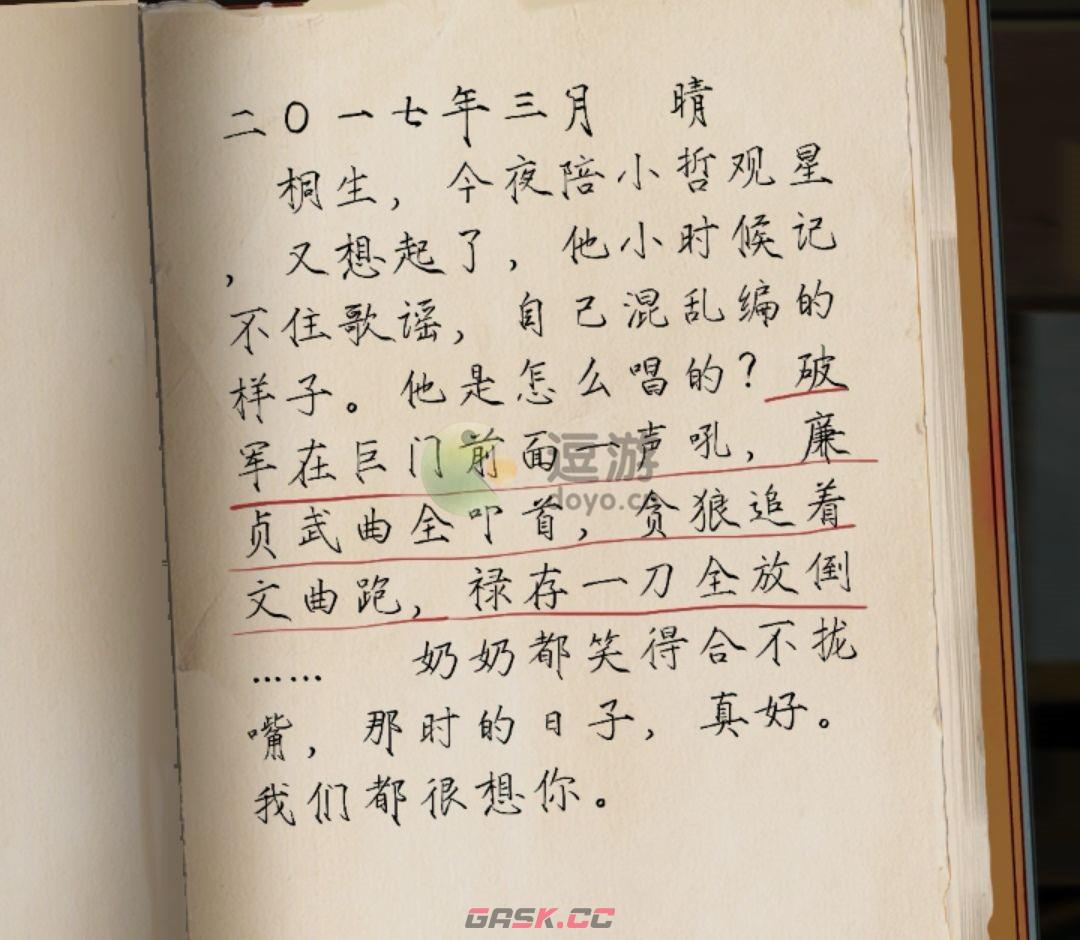 二〇一七年三月 晴
桐生，今夜陪小哲观星
，又想起了，他小时候记
不住歌谣，自己混乱编的
样子。他是怎么唱的？破
军在巨门前面一声吼，廉
贞武曲全叩首，贪狼追着
文曲跑，禄存一刀全放倒
…… 奶奶都笑得合不拢
嘴，那时的日子，真好。
我们都很想你。
逗游
doyo.cn
GASK.CC